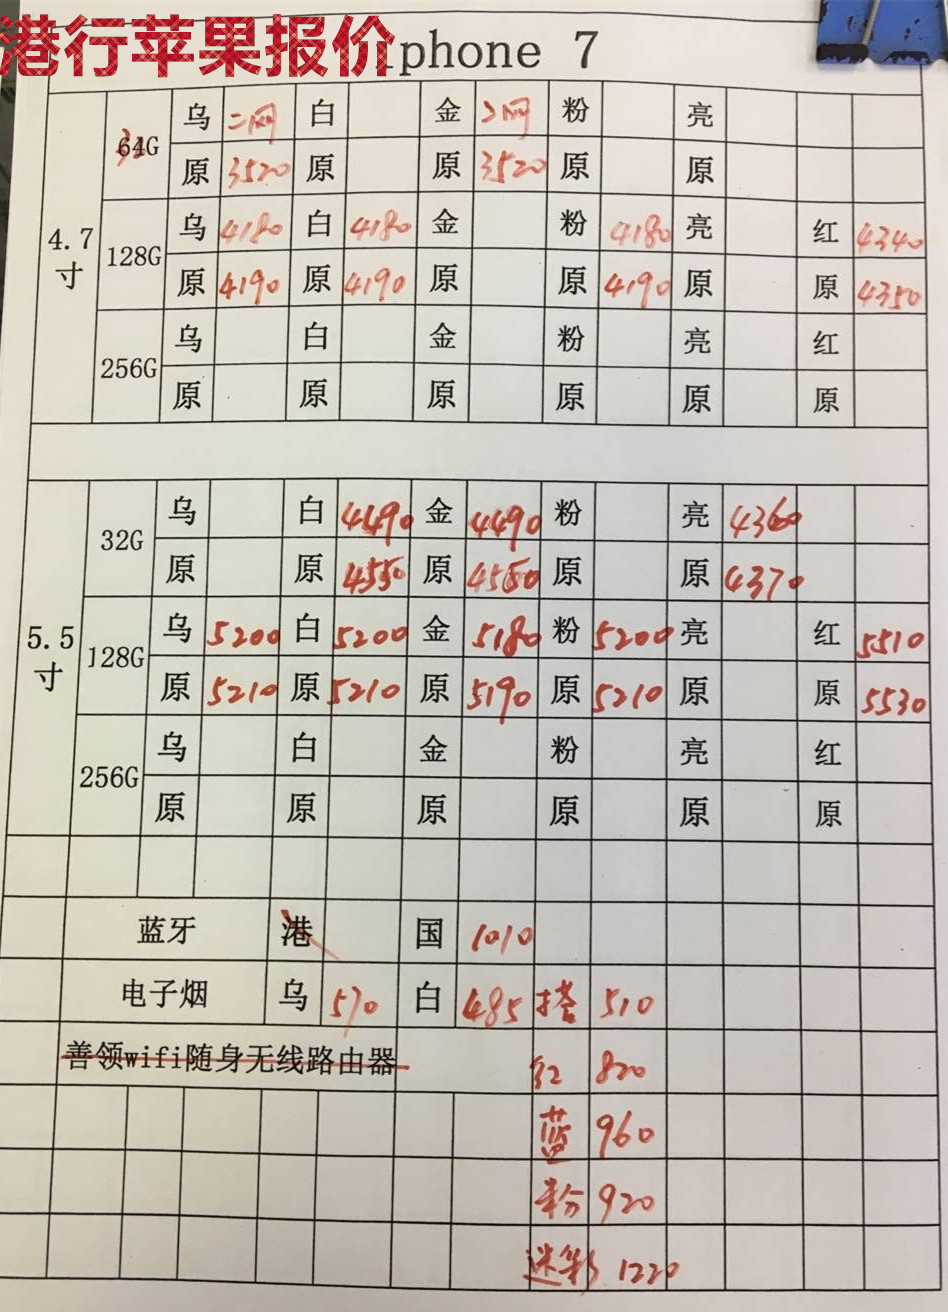 港行苹果报价
iphone 7
4.7寸
32 64G 乌 二网 白 金 二网 粉 亮
原 3520 原 原 3520 原 原
128G 乌 4180 白 4180 金 粉 4180 亮 红 4340
原 4190 原 4190 原 原 4190 原 原 4350
256G 乌 白 金 粉 亮 红
原 原 原 原 原 原
5.5寸
32G 乌 白 4490 金 4490 粉 亮 4360
原 原 4550 原 4550 原 原 4370
128G 乌 5200 白 5200 金 5180 粉 5200 亮 红 5510
原 5210 原 5210 原 5190 原 5210 原 原 5530
256G 乌 白 金 粉 亮 红
原 原 原 原 原 原
蓝牙 港 国 1010
电子烟 乌 570 白 485 搭 510
善领wifi随身无线路由器 红 820
蓝 960
粉 920
迷彩 1220